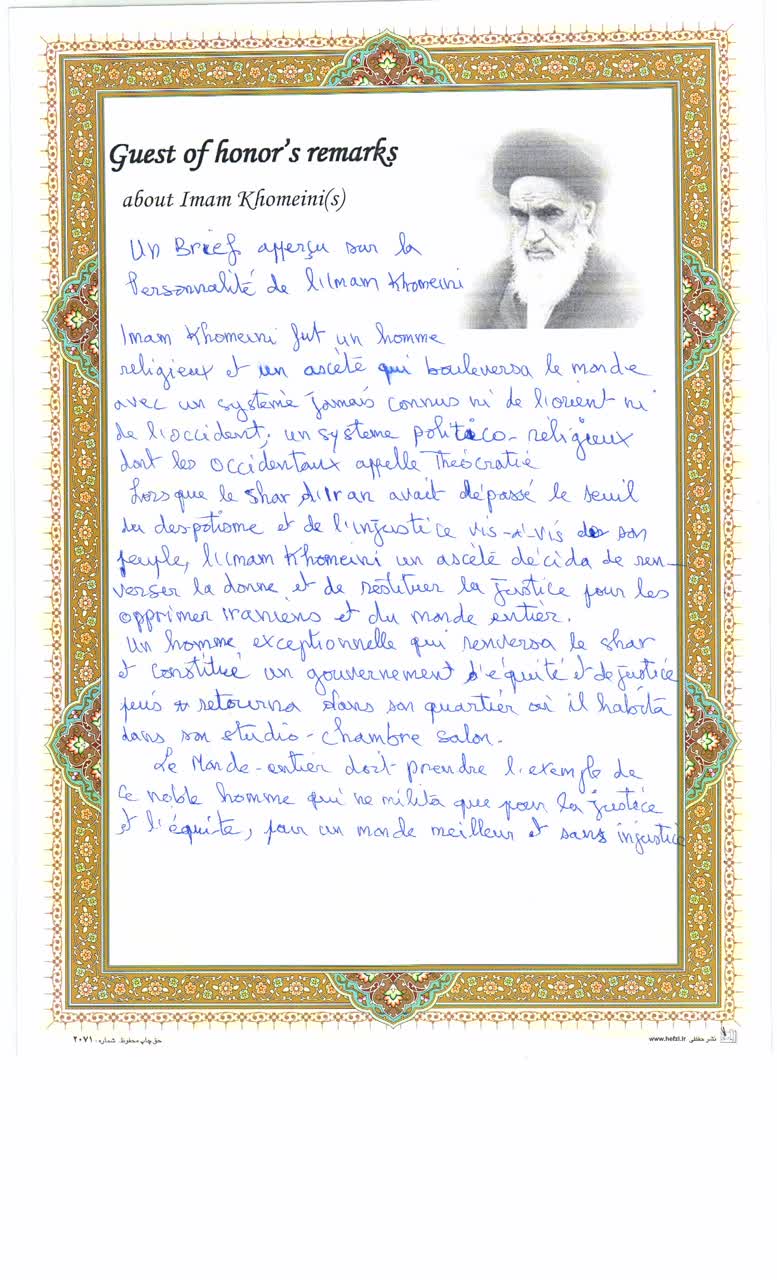 Guest of honor's remarks
about Imam Khomeini(s)
Un Brief apperçu sur la
Personnalité de l'Imam Khomeini
Imam Khomeini fut un homme
religieux et un ascète qui bouleversa le monde
avec un système jamais connus ni de l'orient ni
de l'occident, un systeme politico-religieux
dont les occidentaux appelle Théocratie
Lorsque le Shar d'Iran avait dépassé le seuil
du despotisme et de l'injustice vis-à-vis de son
peuple, l'imam Khomeini un ascète décida de ren-
verser la donne et de réstituer la justice pour les
opprimer iraniens et du monde entier.
Un homme exceptionnelle qui renversa le Shar
et constitué un gouvernement d'équité et de justice
puis retourna dans son quartier où il habita
dans son studio-chambre salon.
Le Monde-entier doit prendre l'exemple de
ce noble homme qui ne milita que pour la justice
et l'équité, pour un monde meilleur et sans injustice
حق چاپ محفوظ. شماره: ۲۰۷۱
www.hefzi.ir نشر حفظی